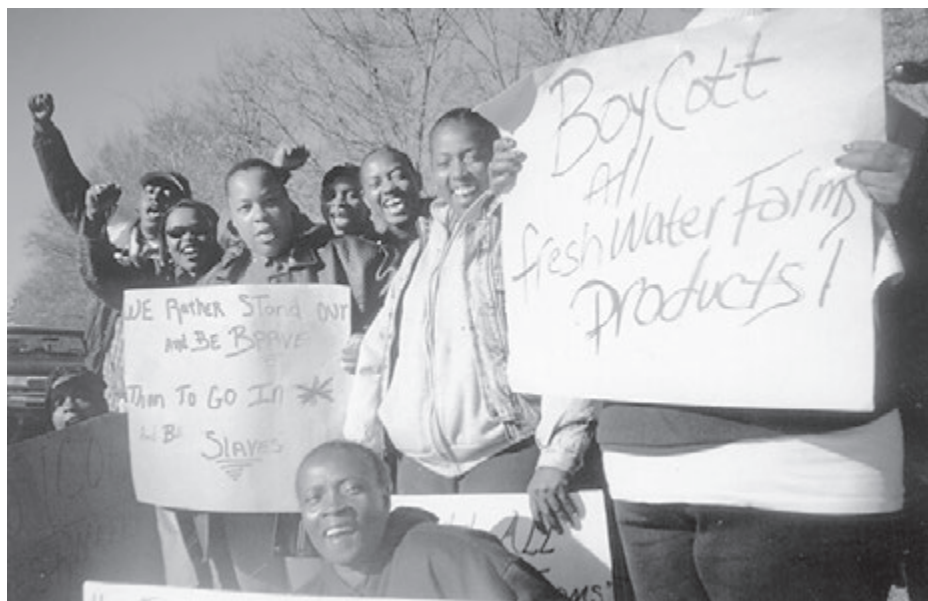 BoyCott
All
freshWater Farms
Products!
WE Rather STand OUT
And BE BRAVE
Than To GO In *
And BE
SLAVES
ALL